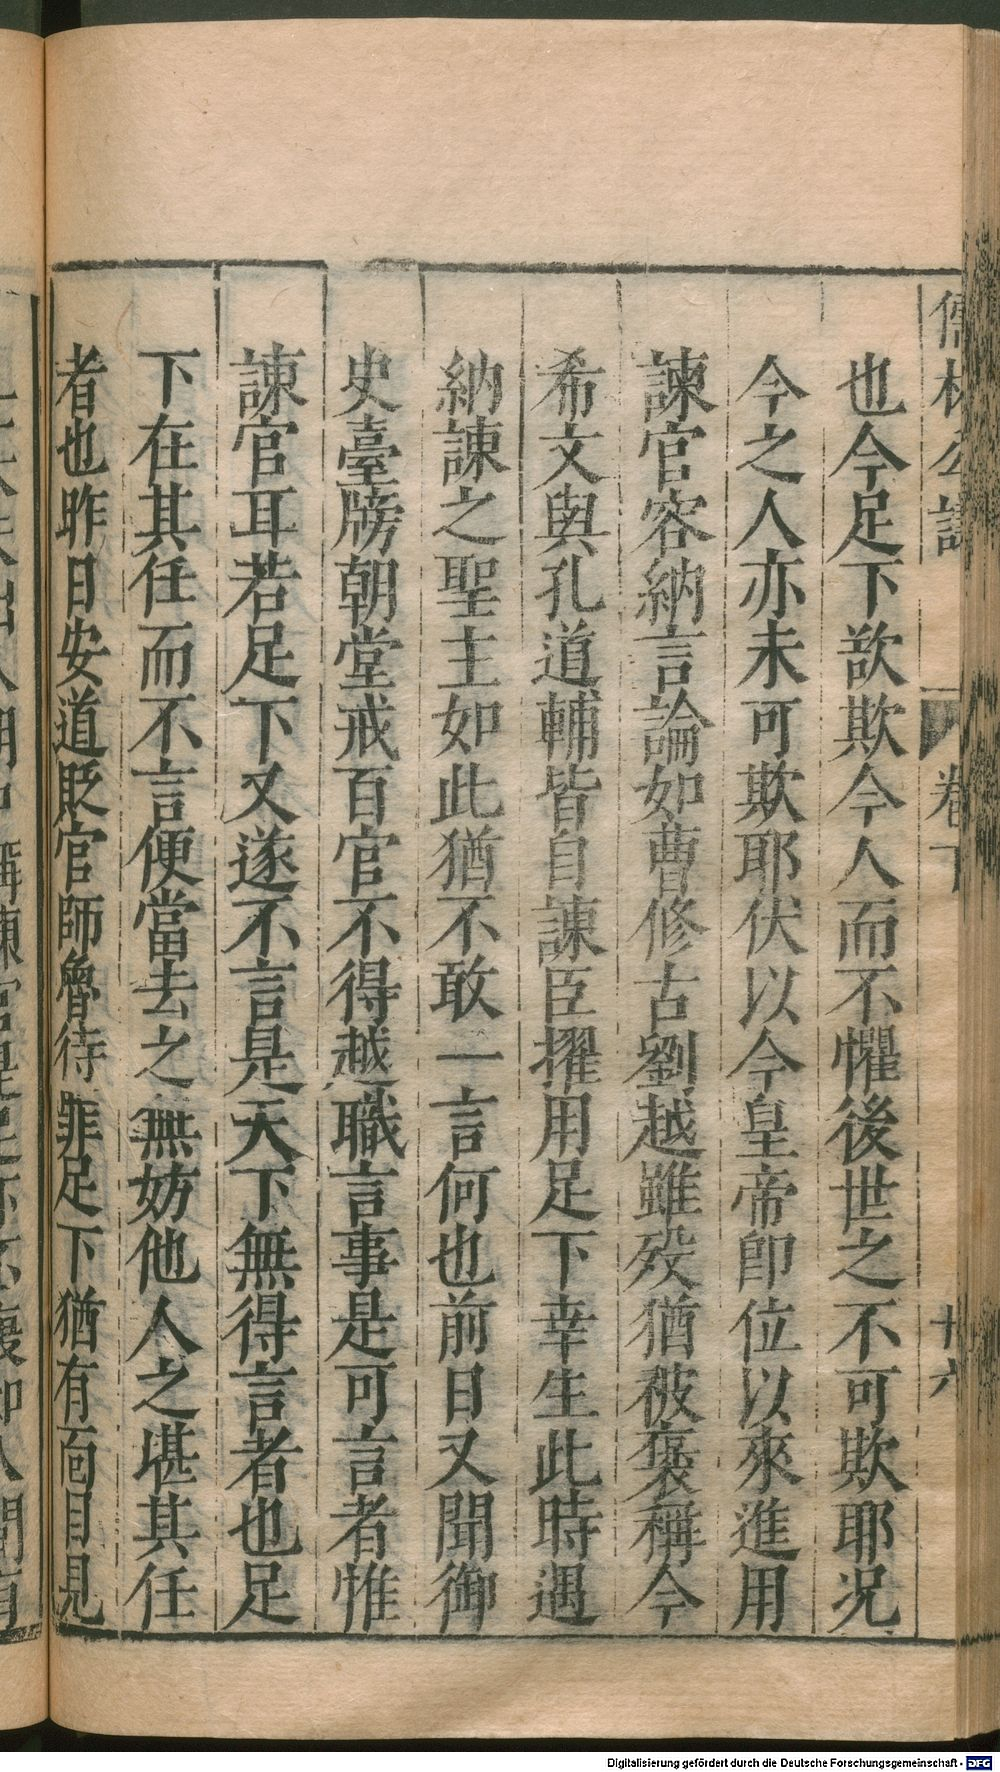 儒林公議 卷下 十六
也今足下欲欺今人而不懼後世之不可欺耶况
今之人亦未可欺耶伏以今皇帝卽位以來進用
諫官容納言論如曹修古劉越雖殁猶被褒稱今
希文與孔道輔皆自諫臣擢用足下幸生此時遇
納諫之聖主如此猶不敢一言何也前日又聞御
史臺牓朝堂戒百官不得越職言事是可言者惟
諫官耳若足下又遂不言是天下無得言者也足
下在其任而不言便當去之無妨他人之堪其任
者也昨日安道貶官師魯待罪足下猶有面目見
Digitalisierung gefördert durch die Deutsche Forschungsgemeinschaft - DFG